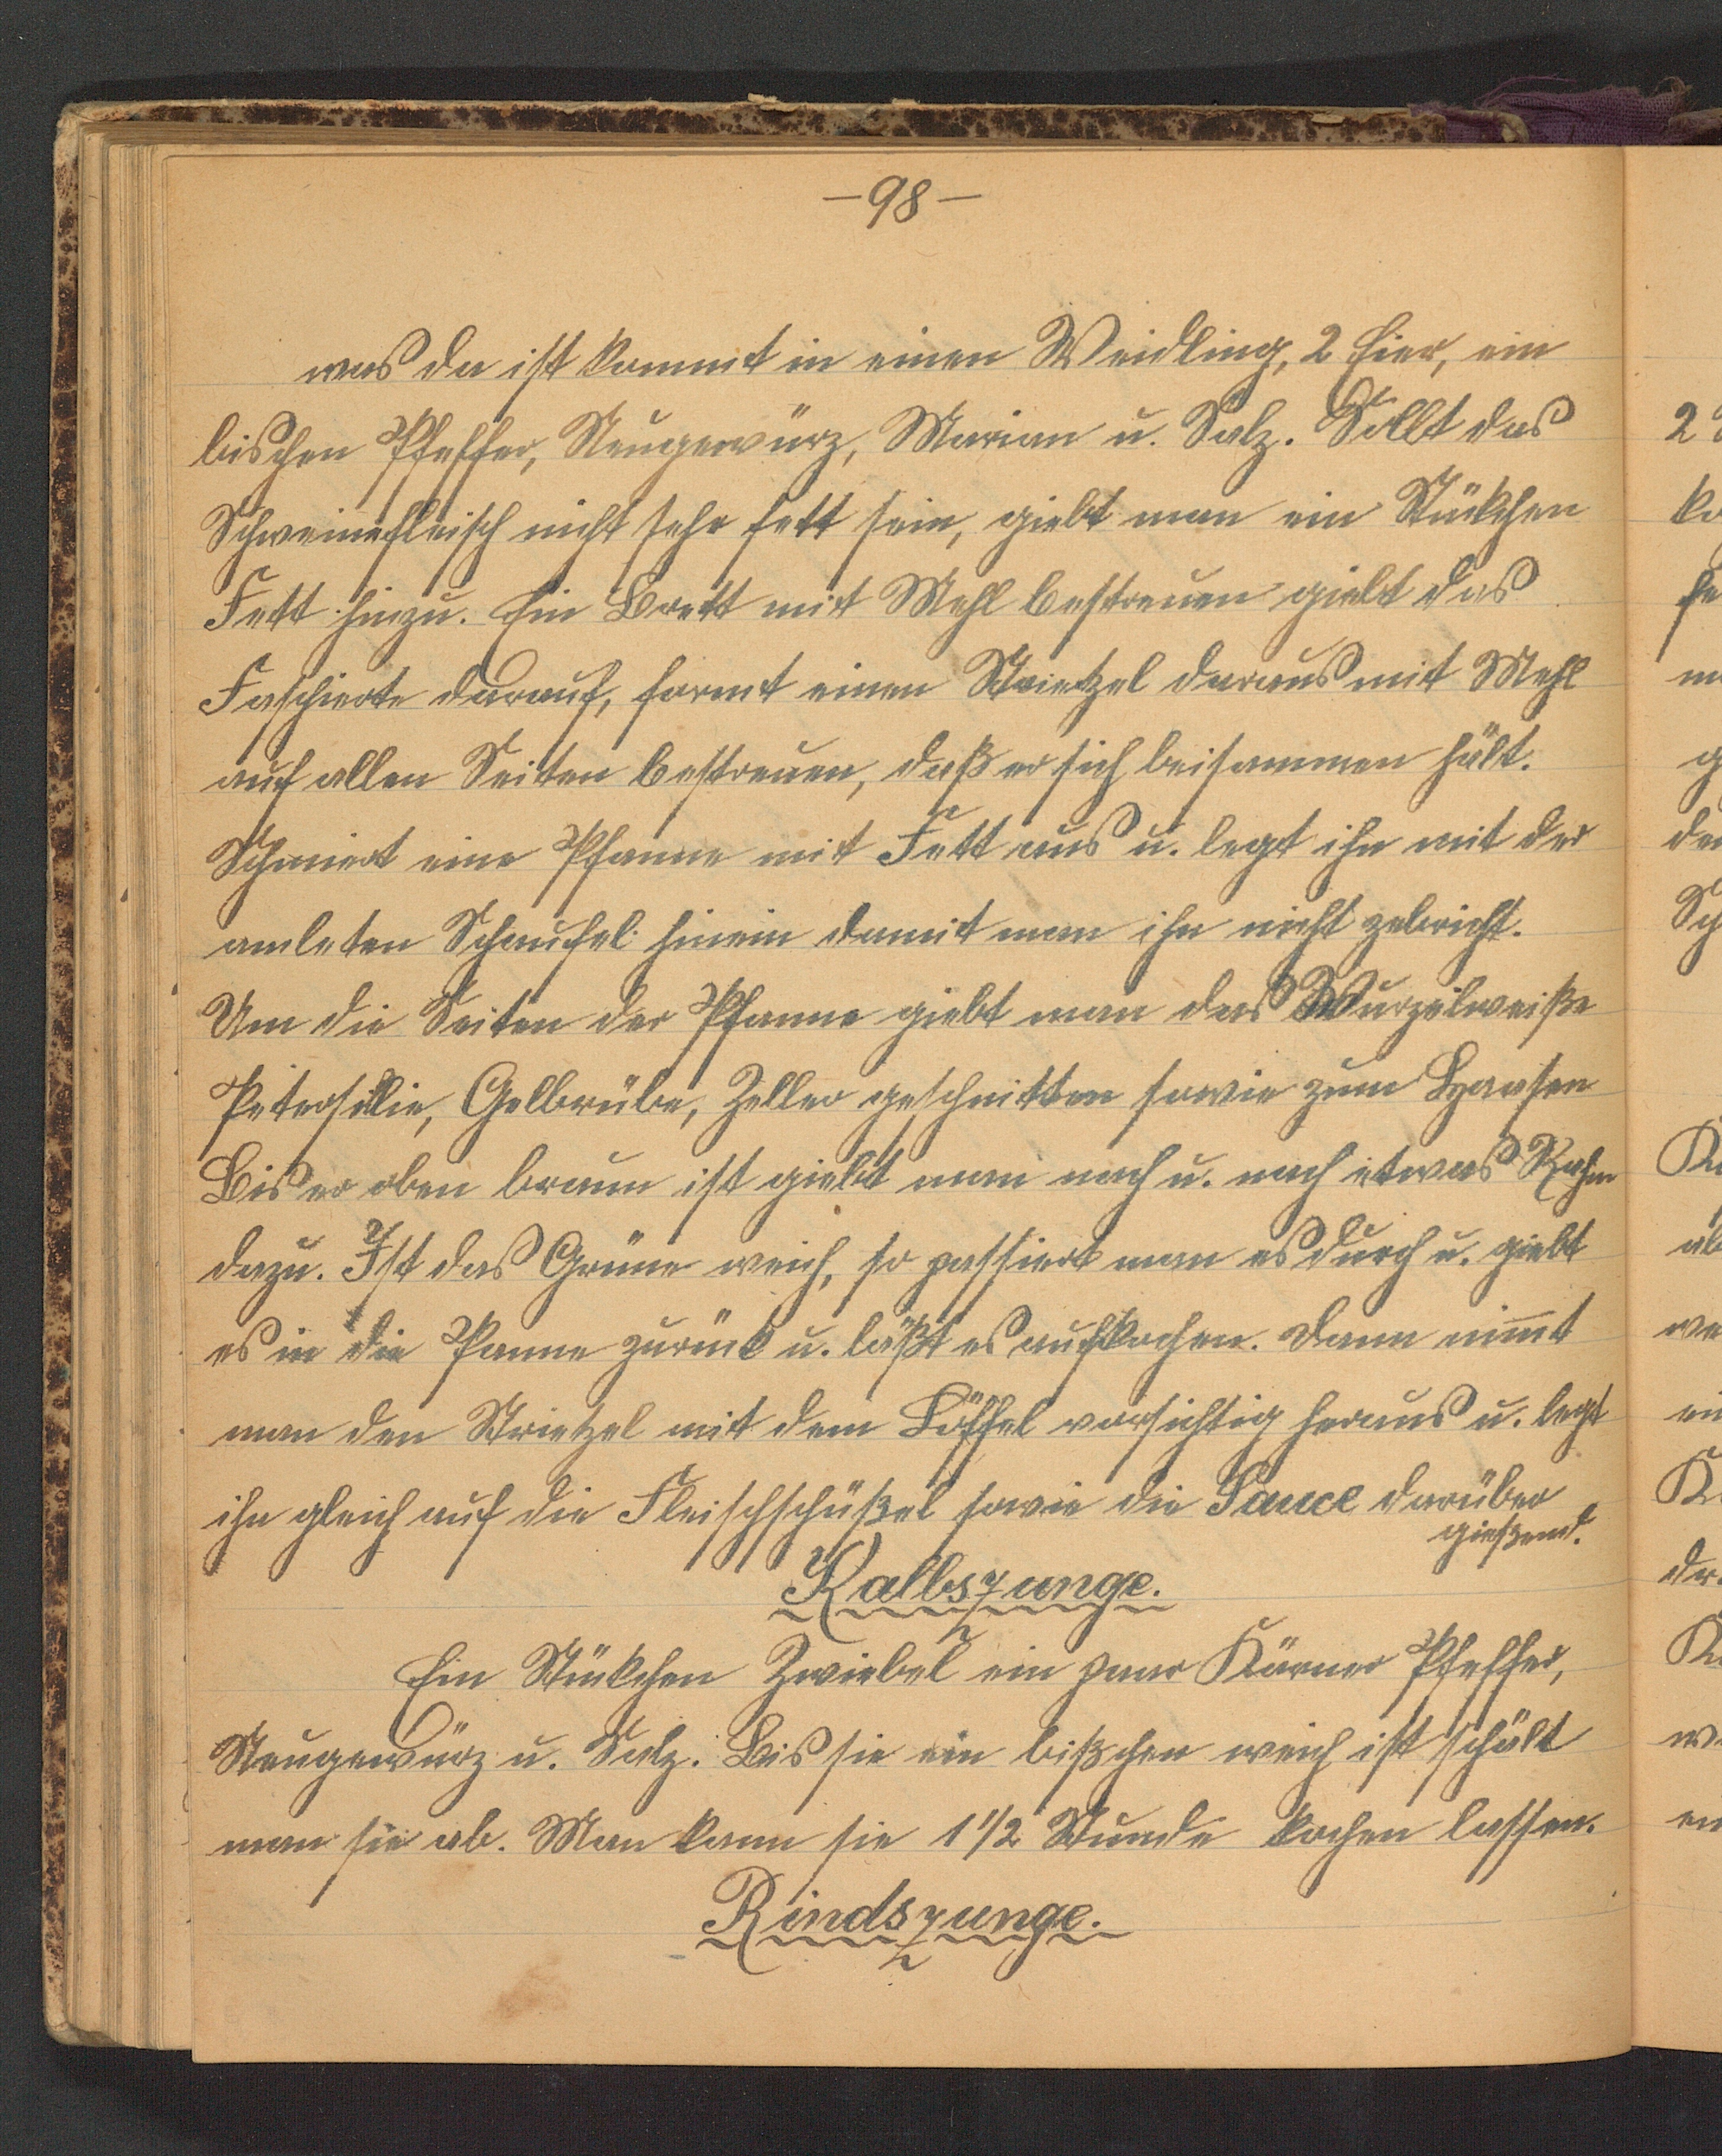 -98-
was da ist kommt in einen Weidling, 2 Eier, ein
bischen Pfeffer, Neugewürz, Marian u. Salz. Sollt das
Schweinefleisch nicht sehr fett sein, giebt man ein Stükchen
Fett hinzu. Ein Brett mit Mehl bestreuen giebt das
Faschierte darauf, formt einen Strietzel daraus mit Mehl
auf allen Seiten bestreuen, daß er sich beisammen hält.
Schmiert eine Pfanne mit Fett aus u. legt ihn mit der
amleten Schaufel hinein damit man ihn nicht zebricht.
Um die Seiten der Pfanne giebt man das Wurzelweiße
Petersilie, Gelbrübe, Zeller geschnitten sowie zum Haasen
Bis er oben braun ist giebt man nach u. nach etwas Rahm
dazu. Ist das Grüne weich, so passiert man es durch u. giebt
es in die Panne zurück u. läßt es aufkochen. Dann nim̅t
man den Strietzel mit dem Löffel vorsichtig heraus u. legt
ihn gleich auf die Fleischschüßel sowie die Sauce darüber
gießend.
Kalbszunge.
Ein Stükchen Zwiebel ein paar Körner Pfeffer,
Neugewürz u. Salz. Bis sie ein bißchen weich ist schält
man sie ab. Man kann sie 1 1/2 Stunde kochen lassen.
Rindszunge.